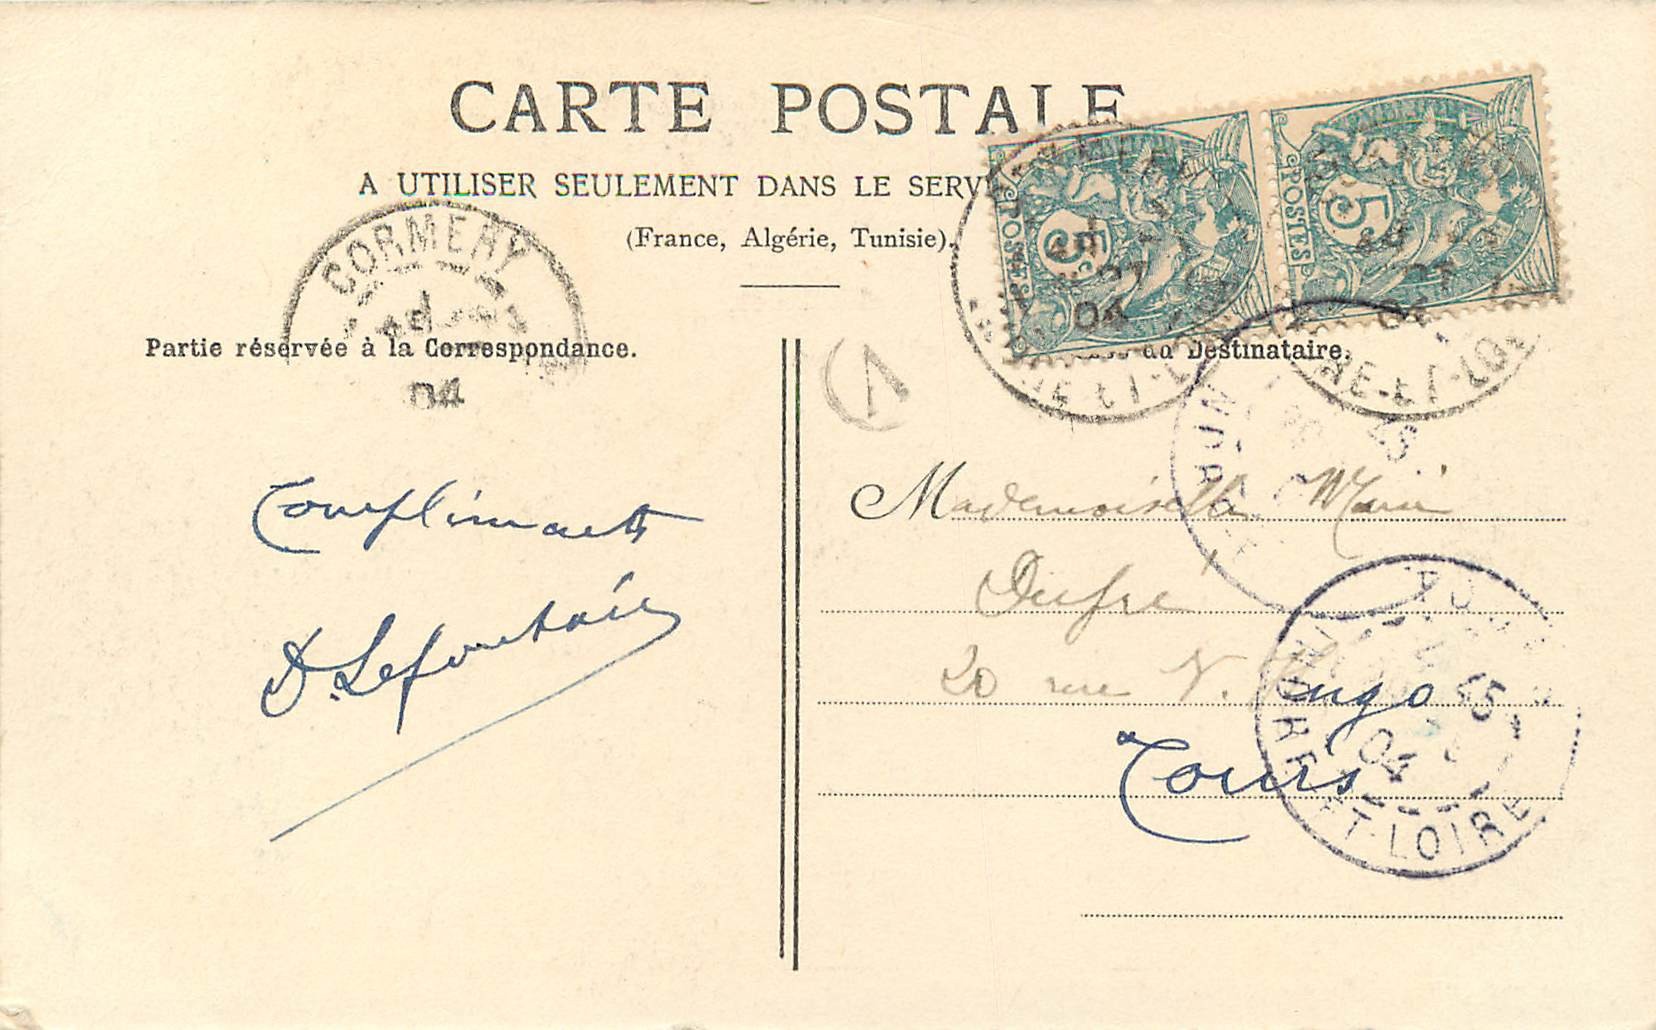 CARTE POSTALE
A UTILISER SEULEMENT DANS LE SERV
(France, Algérie, Tunisie).
CORMERY
04
Partie réservée à la Correspondance.
du Destinataire.
POSTES 5
POSTES 5
04
04
RE-ET-LOI
Compliments
D. Lefontain
Mademoiselle Marie
Dufre
20 rue V. Hugo
à Tours
INDRE ET-LOIRE
04